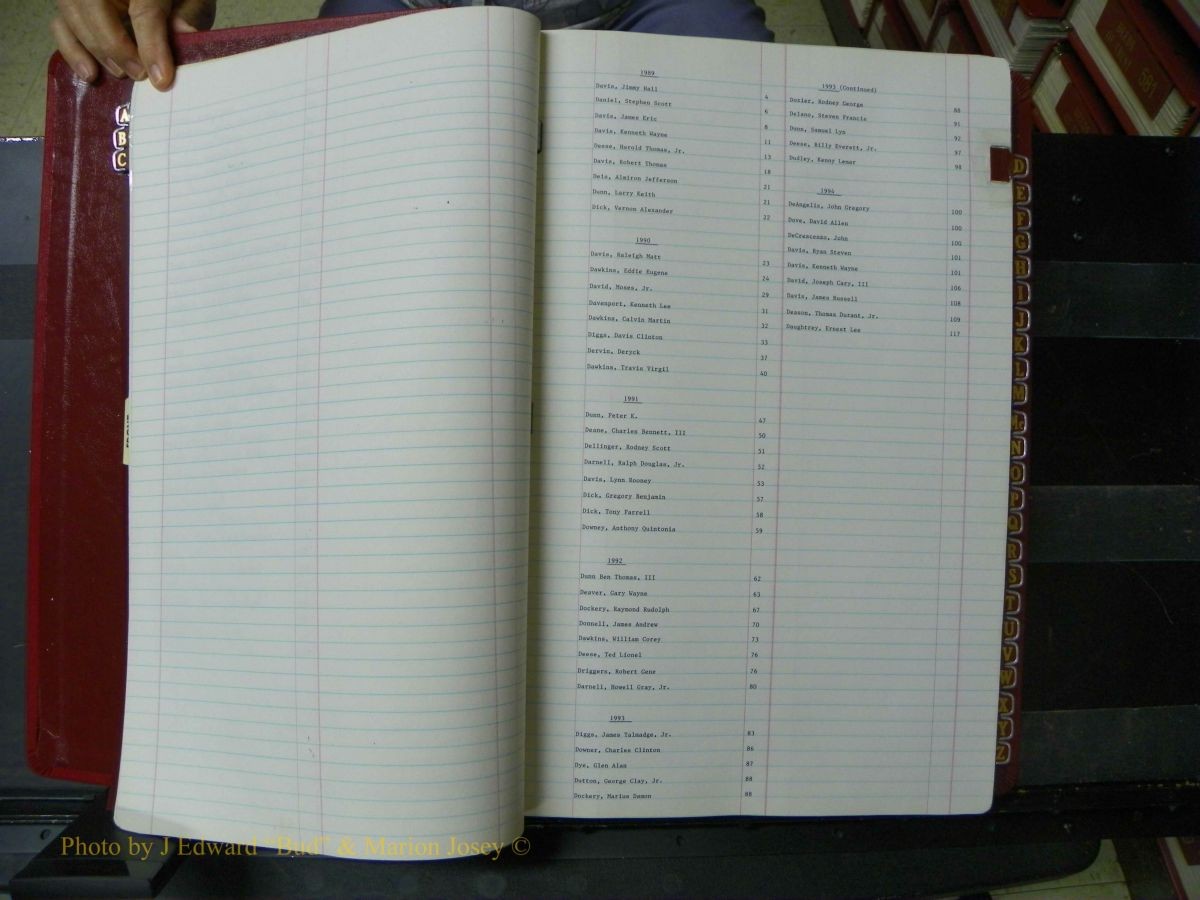 1989
Davis, Jimmy Hall 4
Daniel, Stephen Scott 6
Davis, James Eric 8
Davis, Kenneth Wayne 11
Deese, Harold Thomas, Jr. 13
Davis, Robert Thomas 18
Deis, Almiron Jefferson 21
Dunn, Larry Keith 21
Dick, Varnon Alexander 22
1990
Davis, Raleigh Matt 23
Dawkins, Eddie Eugene 24
David, Moses, Jr. 29
Davenport, Kenneth Lee 31
Dawkins, Calvin Martin 32
Diggs, Davis Clinton 33
Dervin, Deryck 37
Dawkins, Travis Virgil 40
1991
Dunn, Peter K. 47
Deane, Charles Bennett, III 50
Dellinger, Rodney Scott 51
Darnell, Ralph Douglas, Jr. 52
Davis, Lynn Rooney 53
Dick, Gregory Benjamin 57
Dick, Tony Farrell 58
Downey, Anthony Quintonia 59
1992
Dunn Ben Thomas, III 62
Deaver, Gary Wayne 63
Dockery, Raymond Rudolph 67
Donnell, James Andrew 70
Dawkins, William Corey 73
Deese, Ted Lionel 76
Driggers, Robert Gene 76
Darnell, Howell Gray, Jr. 80
1993
Diggs, James Talmadge, Jr. 83
Downer, Charles Clinton 86
Dye, Glen Alan 87
Dutton, George Clay, Jr. 88
Dockery, Marius Damon 88
1993 (Continued)
Dozier, Rodney George 88
Delano, Steven Francis 91
Dunn, Samuel Lyn 92
Deese, Billy Everett, Jr. 97
Dudley, Kenny Lemar 98
1994
DeAngelis, John Gregory 100
Dove, David Allen 100
DeCrescenzo, John 100
Davis, Ryan Steven 101
Davis, Kenneth Wayne 101
David, Joseph Cary, III 106
Davis, James Russell 108
Deason, Thomas Durant, Jr. 109
Daughtrey, Ernest Lee 117
A
B
C
D
E
F
G
H
I
J
K
L
M
Mc
N
O
P
Q
R
S
T
U
V
W
X
Y
Z
581
Photo by J Edward "Bud" & Marion Josey ©